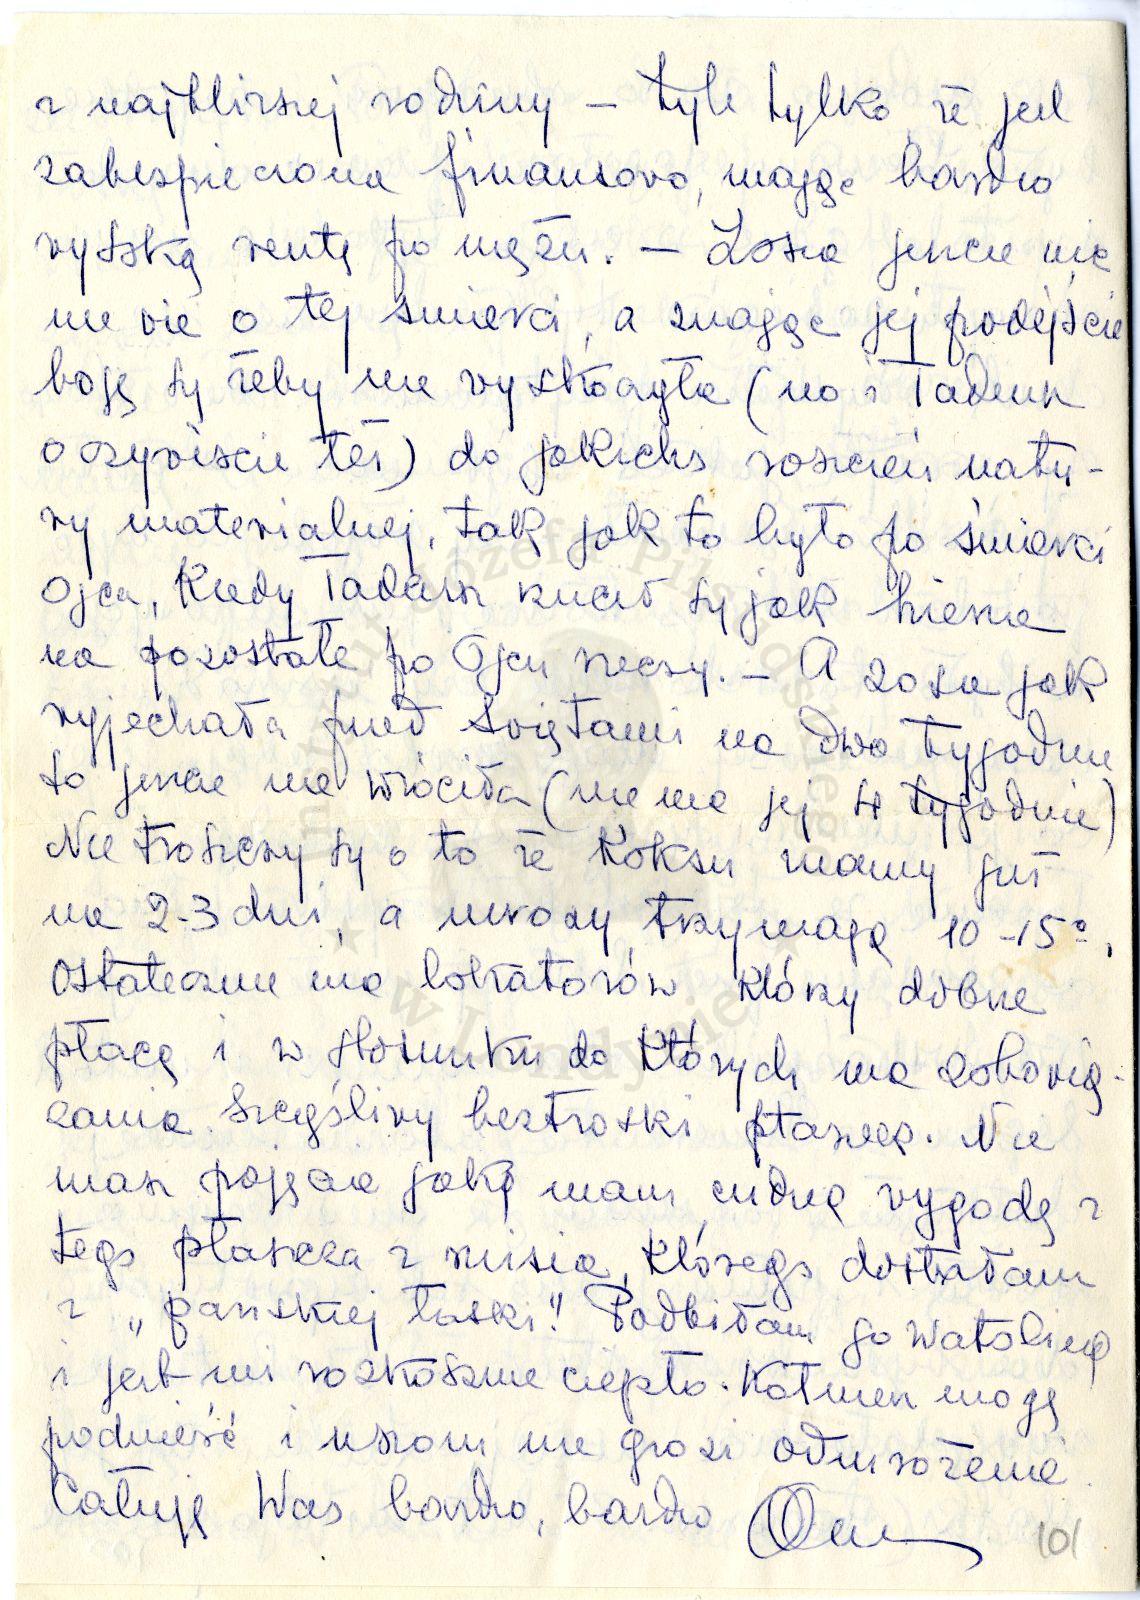 z najbliższej rodziny – tyle tylko, że jest
zabezpieczona finansowo, mając bardzo
wysoką rentę po mężu. – Zosia jeszcze nic
nie wie o tej śmierci, a znając jej podejście
boję się żeby nie wyskoczyła (no i Tadeusz
oczywiście też) do jakichś roszczeń natu-
ry materialnej, tak jak to było po śmierci
Ojca, kiedy Tadeusz rzucił się jak hiena
na pozostałe po Ojcu rzeczy. – A Zosia jak
wyjechała przed Świętami na dwa tygodnie
to jeszcze nie wróciła (nie ma jej 4 tygodnie)
Nie troszczy się o to że koksu mamy już
na 2-3 dni, a mrozy trzymają 10-15°.
Ostatecznie ma lokatorów którzy dobrze
płacą i w stosunku do których ma zobowią-
zania. Szczęśliwy beztroski ptaszek. Nie
masz pojęcia jaką mam cudną wygodę z
tego płaszcza z misia, którego dostałam
z „pańskiej łaski". Podbiłam go watoliną
i jest mi rozkosznie ciepło. Kołnierz mogę
podnieść i uszom nie grozi odmrożenie.
Całuję Was bardzo, bardzo
101
Instytut Józefa Piłsudskiego
w Londynie